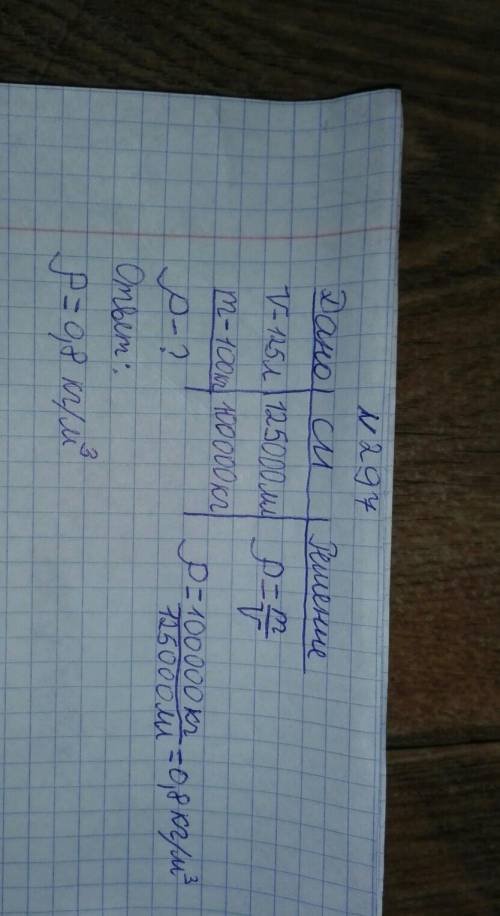 N 297
Дано СИ Решение
V - 125 л 125000 мл ρ = m/V
m - 100 кг 100000 кг
ρ - ? ρ = 100000 кг/125000 мл = 0,8 кг/м³
Ответ:
ρ = 0,8 кг/м³